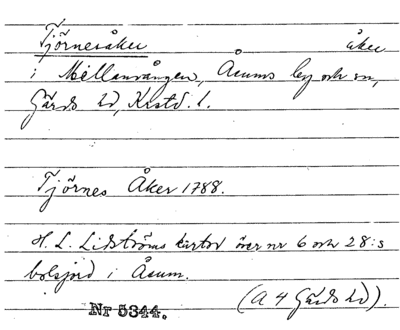 Tjörnesåker åker
i Mellanvången, Åsums by och sn,
Gärds hd, Krstd. l.
Tjörnes Åker 1788.
H. L. Lidströms kartor över nr 6 och 28:s
bolsjord i Åsum.
(A 4 Gärds hd).
Nr 5344.